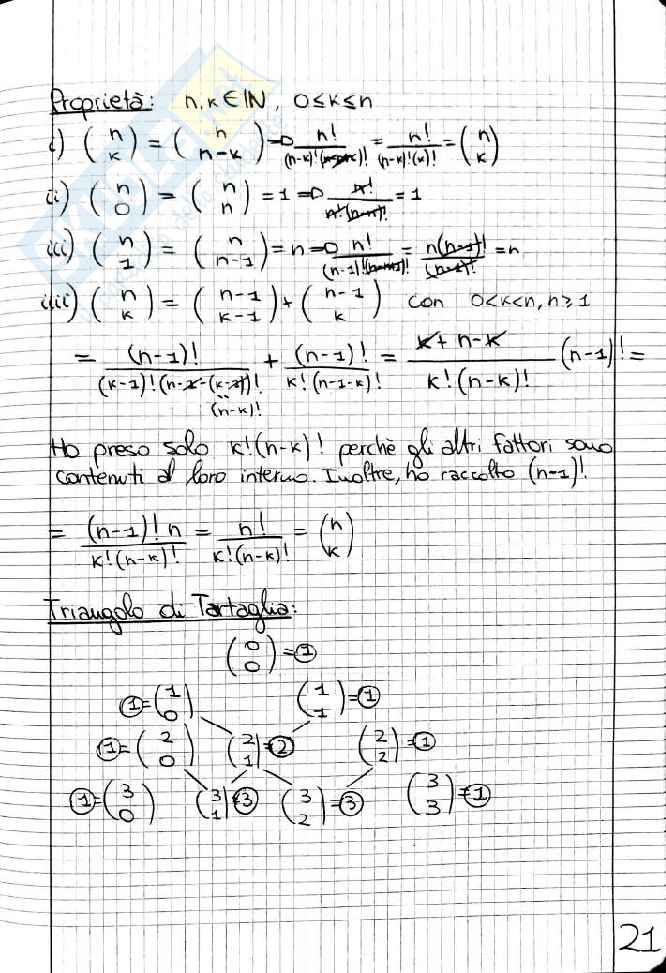 Proprietà: n,k ∈ ℕ, 0≤k≤n
i) (n k) = (n n-k) ⇒ n!/(n-k)!(n-n+k)! = n!/(n-k)!(k)! = (n k)
ii) (n 0) = (n n) = 1 ⇒ n!/n!(n-n)! = 1
iii) (n 1) = (n n-1) = n ⇒ n!/(n-1)!(n-n+1)! = n(n-1)!/(n-1)! = n
iiii) (n k) = (n-1 k-1) + (n-1 k) con 0<k<n, n≥1
= (n-1)!/(k-1)!(n-1-(k-1))! + (n-1)!/k!(n-1-k)! = k+n-k/k!(n-k)! (n-1)! =
(n-k)!
Ho preso solo k!(n-k)! perchè gli altri fattori sono
contenuti al loro interno. Inoltre, ho raccolto (n-1)!
= (n-1)! n/k!(n-k)! = n!/k!(n-k)! = (n k)
Triangolo di Tartaglia:
(0 0) = 1
1 = (1 0) (1 1) = 1
1 = (2 0) (2 1) = 2 (2 2) = 1
1 = (3 0) (3 1) = 3 (3 2) = 3 (3 3) = 1
21